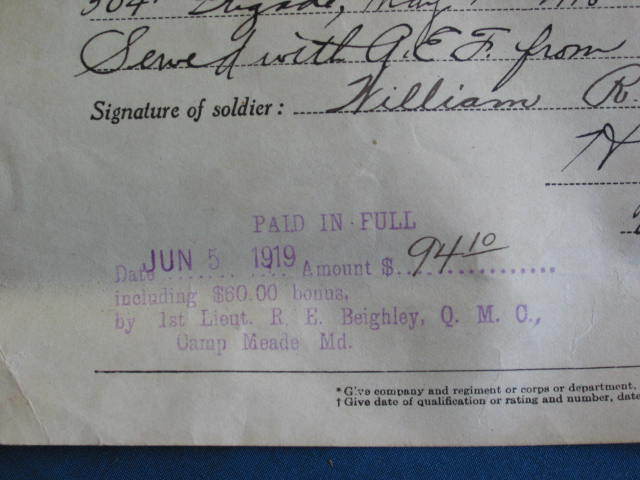 304" Brigade, May
Served with A.E.F. from
Signature of soldier: William R.
PAID IN FULL
Date JUN 5 1919 Amount $ 94.10
including $60.00 bonus,
by 1st Lieut. R. E. Beighley, Q. M. C.,
Camp Meade Md.
*Give company and regiment or corps or department.
†Give date of qualification or rating and number, date